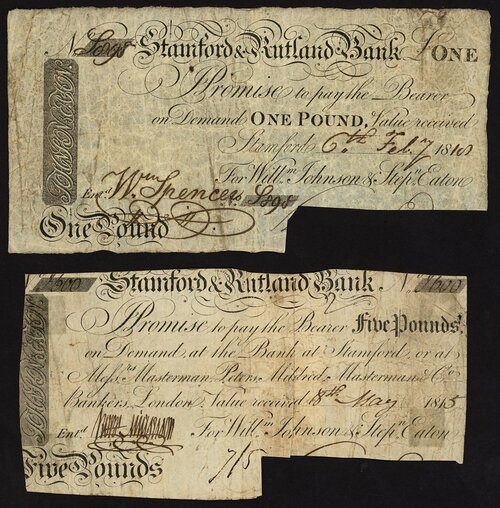 No. Stamford & Rutland Bank £ONE
I Promise to pay the Bearer
on Demand ONE POUND, Value received
Stamford 6th Feby 1810
For Willm. Johnson & Stepn. Eaton
Entd. Wm Spencer
One Pound
Stamford & Rutland Bank. No.
I Promise to pay the Bearer Five Pounds,
on Demand, at the Bank at Stamford, or at
Messrs. Masterman, Peters, Mildred, Masterman & Co.
Bankers, London. Value received 18th May 1815
Entd. For Willm. Johnson & Stepn. Eaton
Five Pounds 715